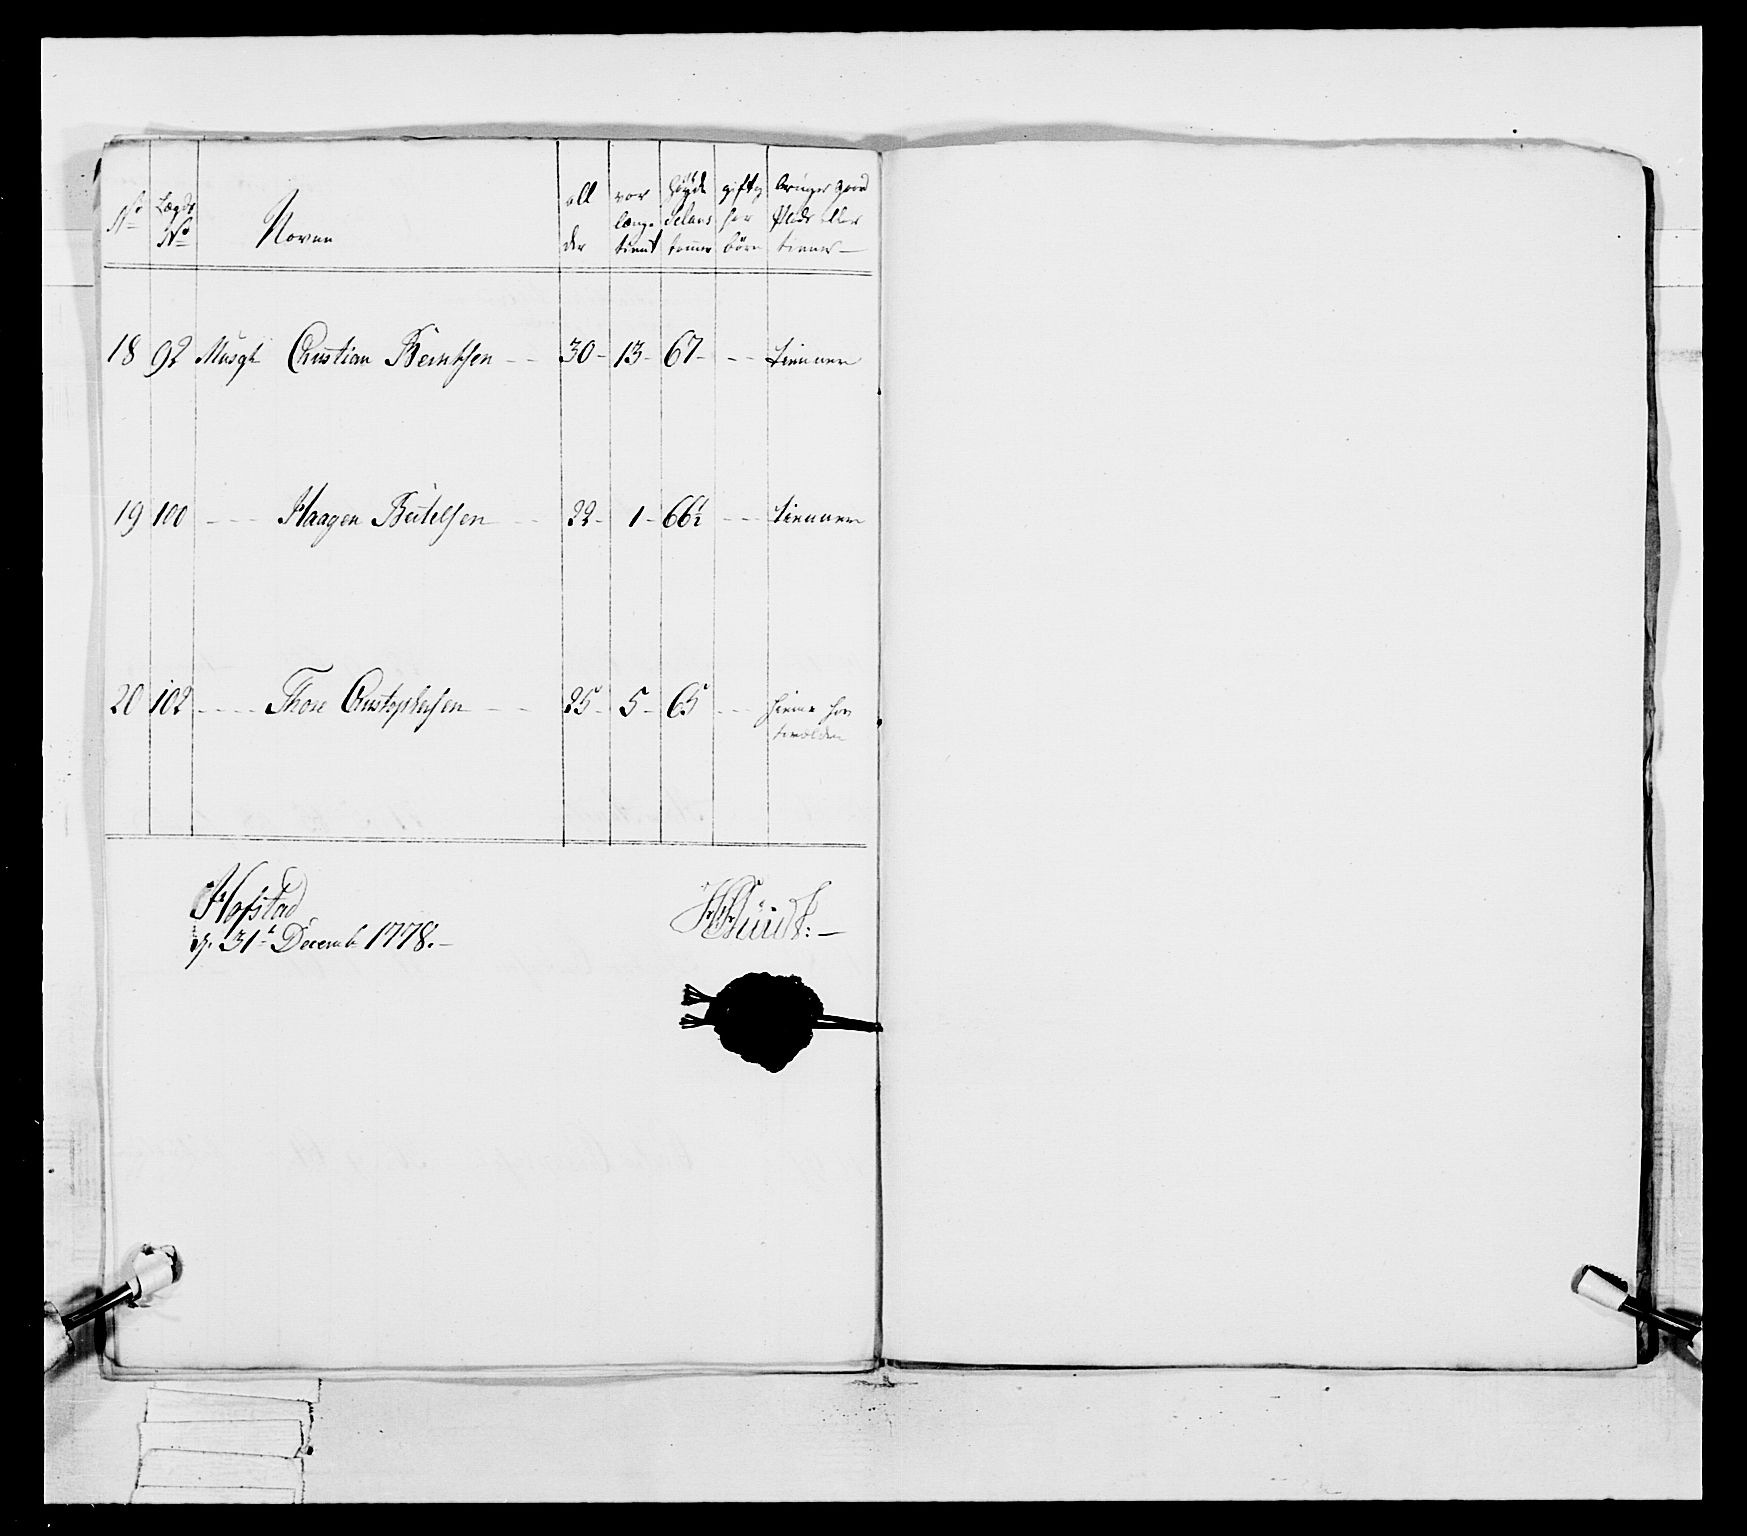 No Lægds No Navn all der vor længe tient høyde Selans tommer gifty har börn bruger gaard Plads eller tiener
18 92 Musqt Christian Berntsen - - 30 - 13 - 67 - - - tienner
19 100 - - - Haagen Bertelsen - - 22 - 1 - 66½ - - - tienner
20 102 - - - - Thore Christophersen - - 25 - 5 - 65 - - - hieme hos
Hofstad
d. 31t Decemb 1778. -